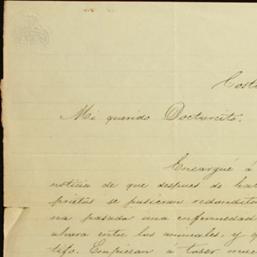 Costa
Mi querido Doctorcito.
Encargué á
noticia de que despues de hab
prietos se pusieron redondito
na pasado una enfermedad
ahora entre los animales y q
tifo. Empiezan á toser muc